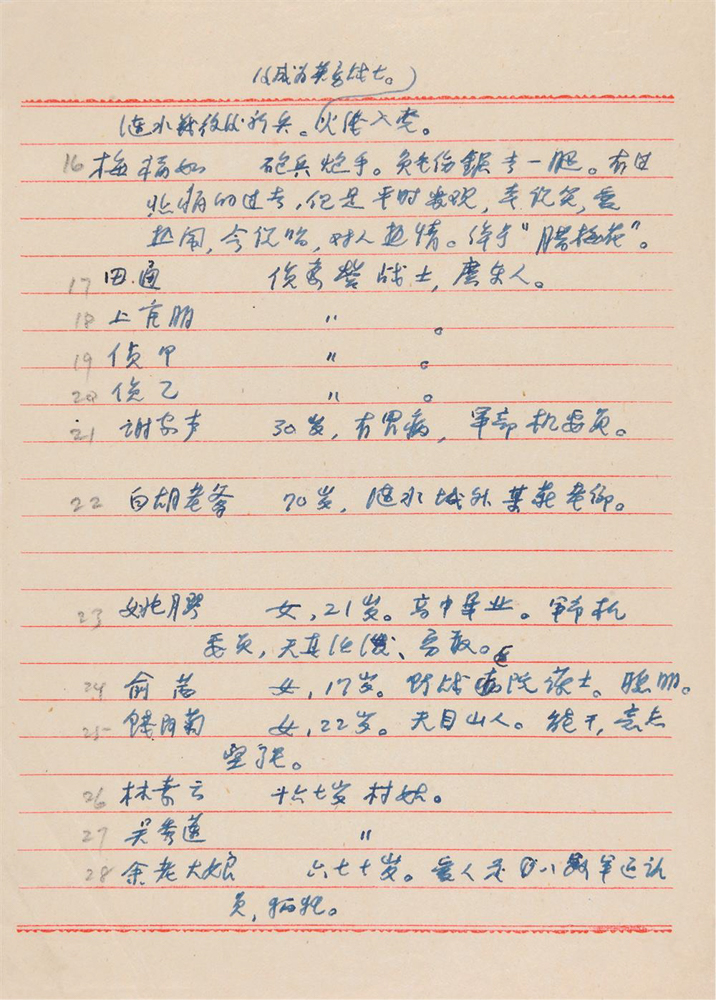 (成为英勇战士。)
涟水战役的新兵。火伍入党。
16 梅福如 砲兵炮手。负重伤锯去一腿。有过
悲痛的过去,但是平时发观,幸说笑,爱
热闹,今说哈,对人热情。绰号“腊梅花”。
17 田通 侦察营战士,广东人。
18 上官朋 〃 。
19 侦甲 〃 。
20 侦乙 〃 。
21 谢家声 30岁,有胃病,军部机要员。
22 白胡老爹 70岁,涟水城外某庄老乡。
23 姚月琴 女,21岁。高中毕业。军部机
要员,天真活泼、勇敢。
24 俞茜 女,17岁。野战病院护士。聪明。
25 钱阿菊 女,22岁。天目山人。能干,意志
坚强。
26 林素云 十六七岁村姑。
27 吴秀莲 〃
28 余老大娘 六七十岁。爱人是八路军
员,牺牲。